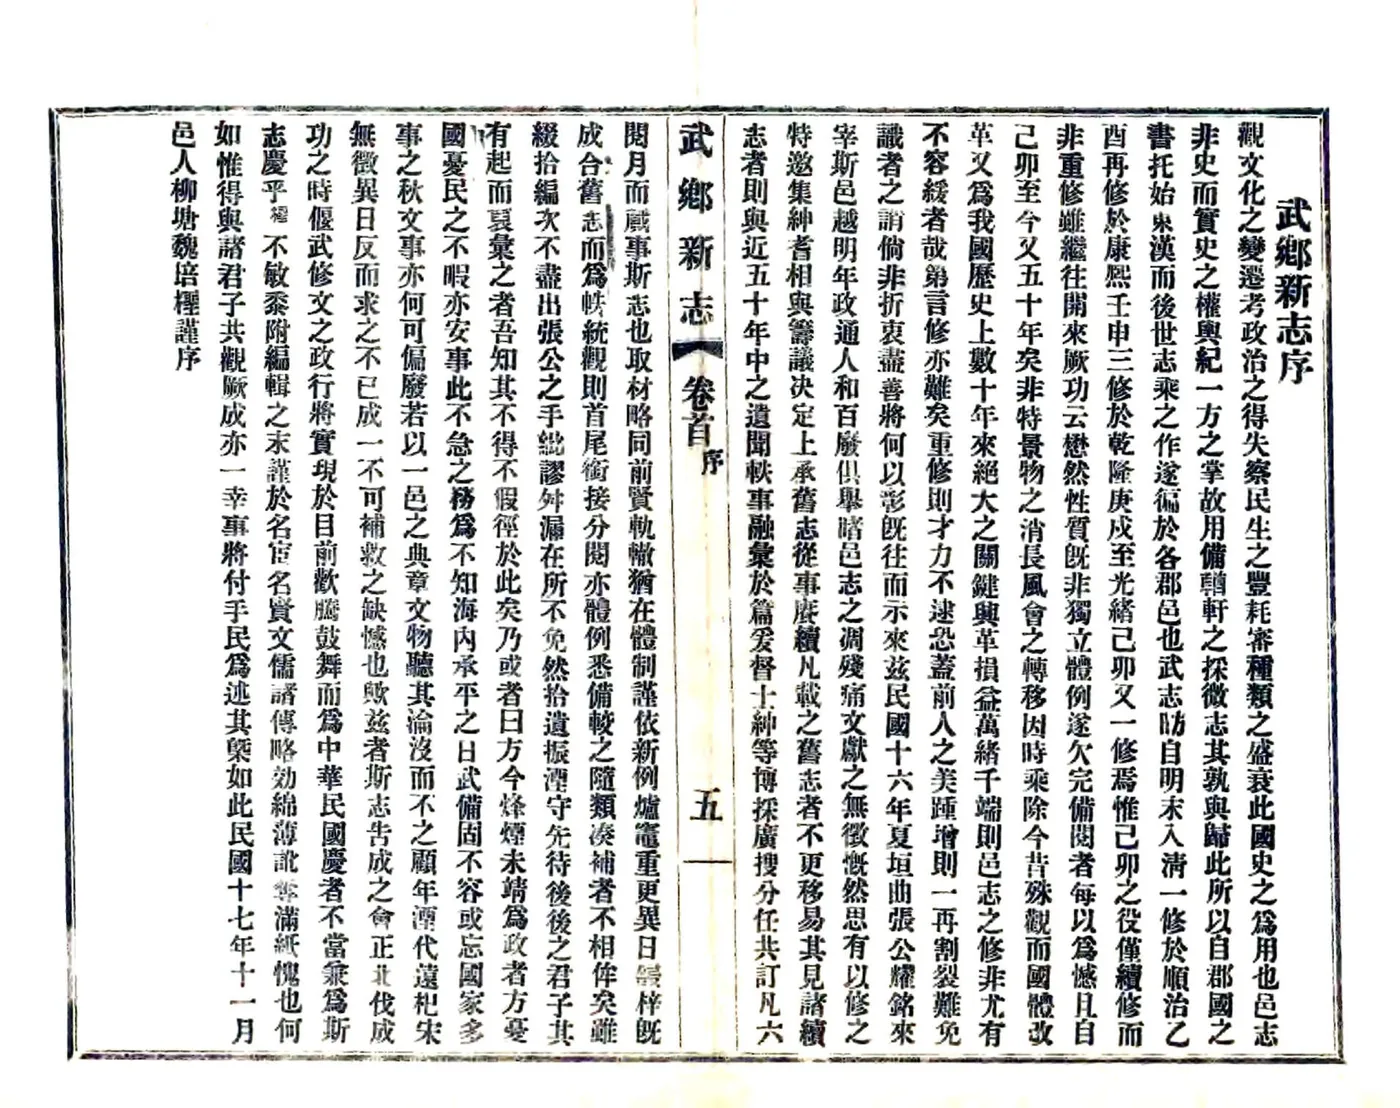 武鄉新志序
觀文化之變遷考政治之得失察民生之豐耗審種類之盛衰此國史之爲用也邑志
非史而實史之權輿紀一方之掌故用備輶軒之採徵志其孰與歸此所以自郡國之
書托始東漢而後世志乘之作遂徧於各郡邑也武志昉自明末入清一修於順治乙
酉再修於康熙壬申三修於乾隆庚戌至光緒己卯又一修焉惟己卯之役僅續修而
非重修雖繼往開來厥功云懋然性質旣非獨立體例遂欠完備閱者每以爲憾且自
己卯至今又五十年矣非特景物之消長風會之轉移因時乘除今昔殊觀而國體改
革又爲我國歷史上數十年來絕大之關鍵興革損益萬緒千端則邑志之修非尤有
不容緩者哉第言修亦難矣重修則才力不逮恐蓋前人之美踵增則一再割裂難免
識者之誚倘非折衷盡善將何以彰旣往而示來茲民國十六年夏垣曲張公耀銘來
宰斯邑越明年政通人和百廢俱舉睹邑志之凋殘痛文獻之無徵慨然思有以修之
特邀集紳耆相與籌議决定上承舊志從事賡續凡載之舊志者不更移易其見諸續
志者則與近五十年中之遺聞軼事融彙於篇爰督士紳等博採廣搜分任共訂凡六
武鄉新志 卷首 序 五
閱月而蕆事斯志也取材略同前賢軌轍猶在體制謹依新例爐竈重更異日鋟梓旣
成合舊志而爲帙統觀則首尾銜接分閱亦體例悉備較之隨類湊補者不相侔矣雖
綴拾編次不盡出張公之手紕謬舛漏在所不免然拾遺振湮守先待後後之君子其
有起而裒彙之者吾知其不得不假徑於此矣乃或者曰方今烽煙未靖爲政者方憂
國憂民之不暇亦安事此不急之務爲不知海內承平之日武備固不容或忘國家多
事之秋文事亦何可偏廢若以一邑之典章文物聽其淪沒而不之顧年湮代遠杞宋
無徵異日反而求之不已成一不可補救之缺憾也歟茲者斯志告成之會正北伐成
功之時偃武修文之政行將實現於目前歡騰鼓舞而爲中華民國慶者不當兼爲斯
志慶乎樫不敏忝附編輯之末謹於名宦名賢文儒諸傳略効綿薄訛舛滿紙愧也何
如惟得與諸君子共觀厥成亦一幸事將付手民爲述其槩如此民國十七年十一月
邑人柳塘魏培樫謹序